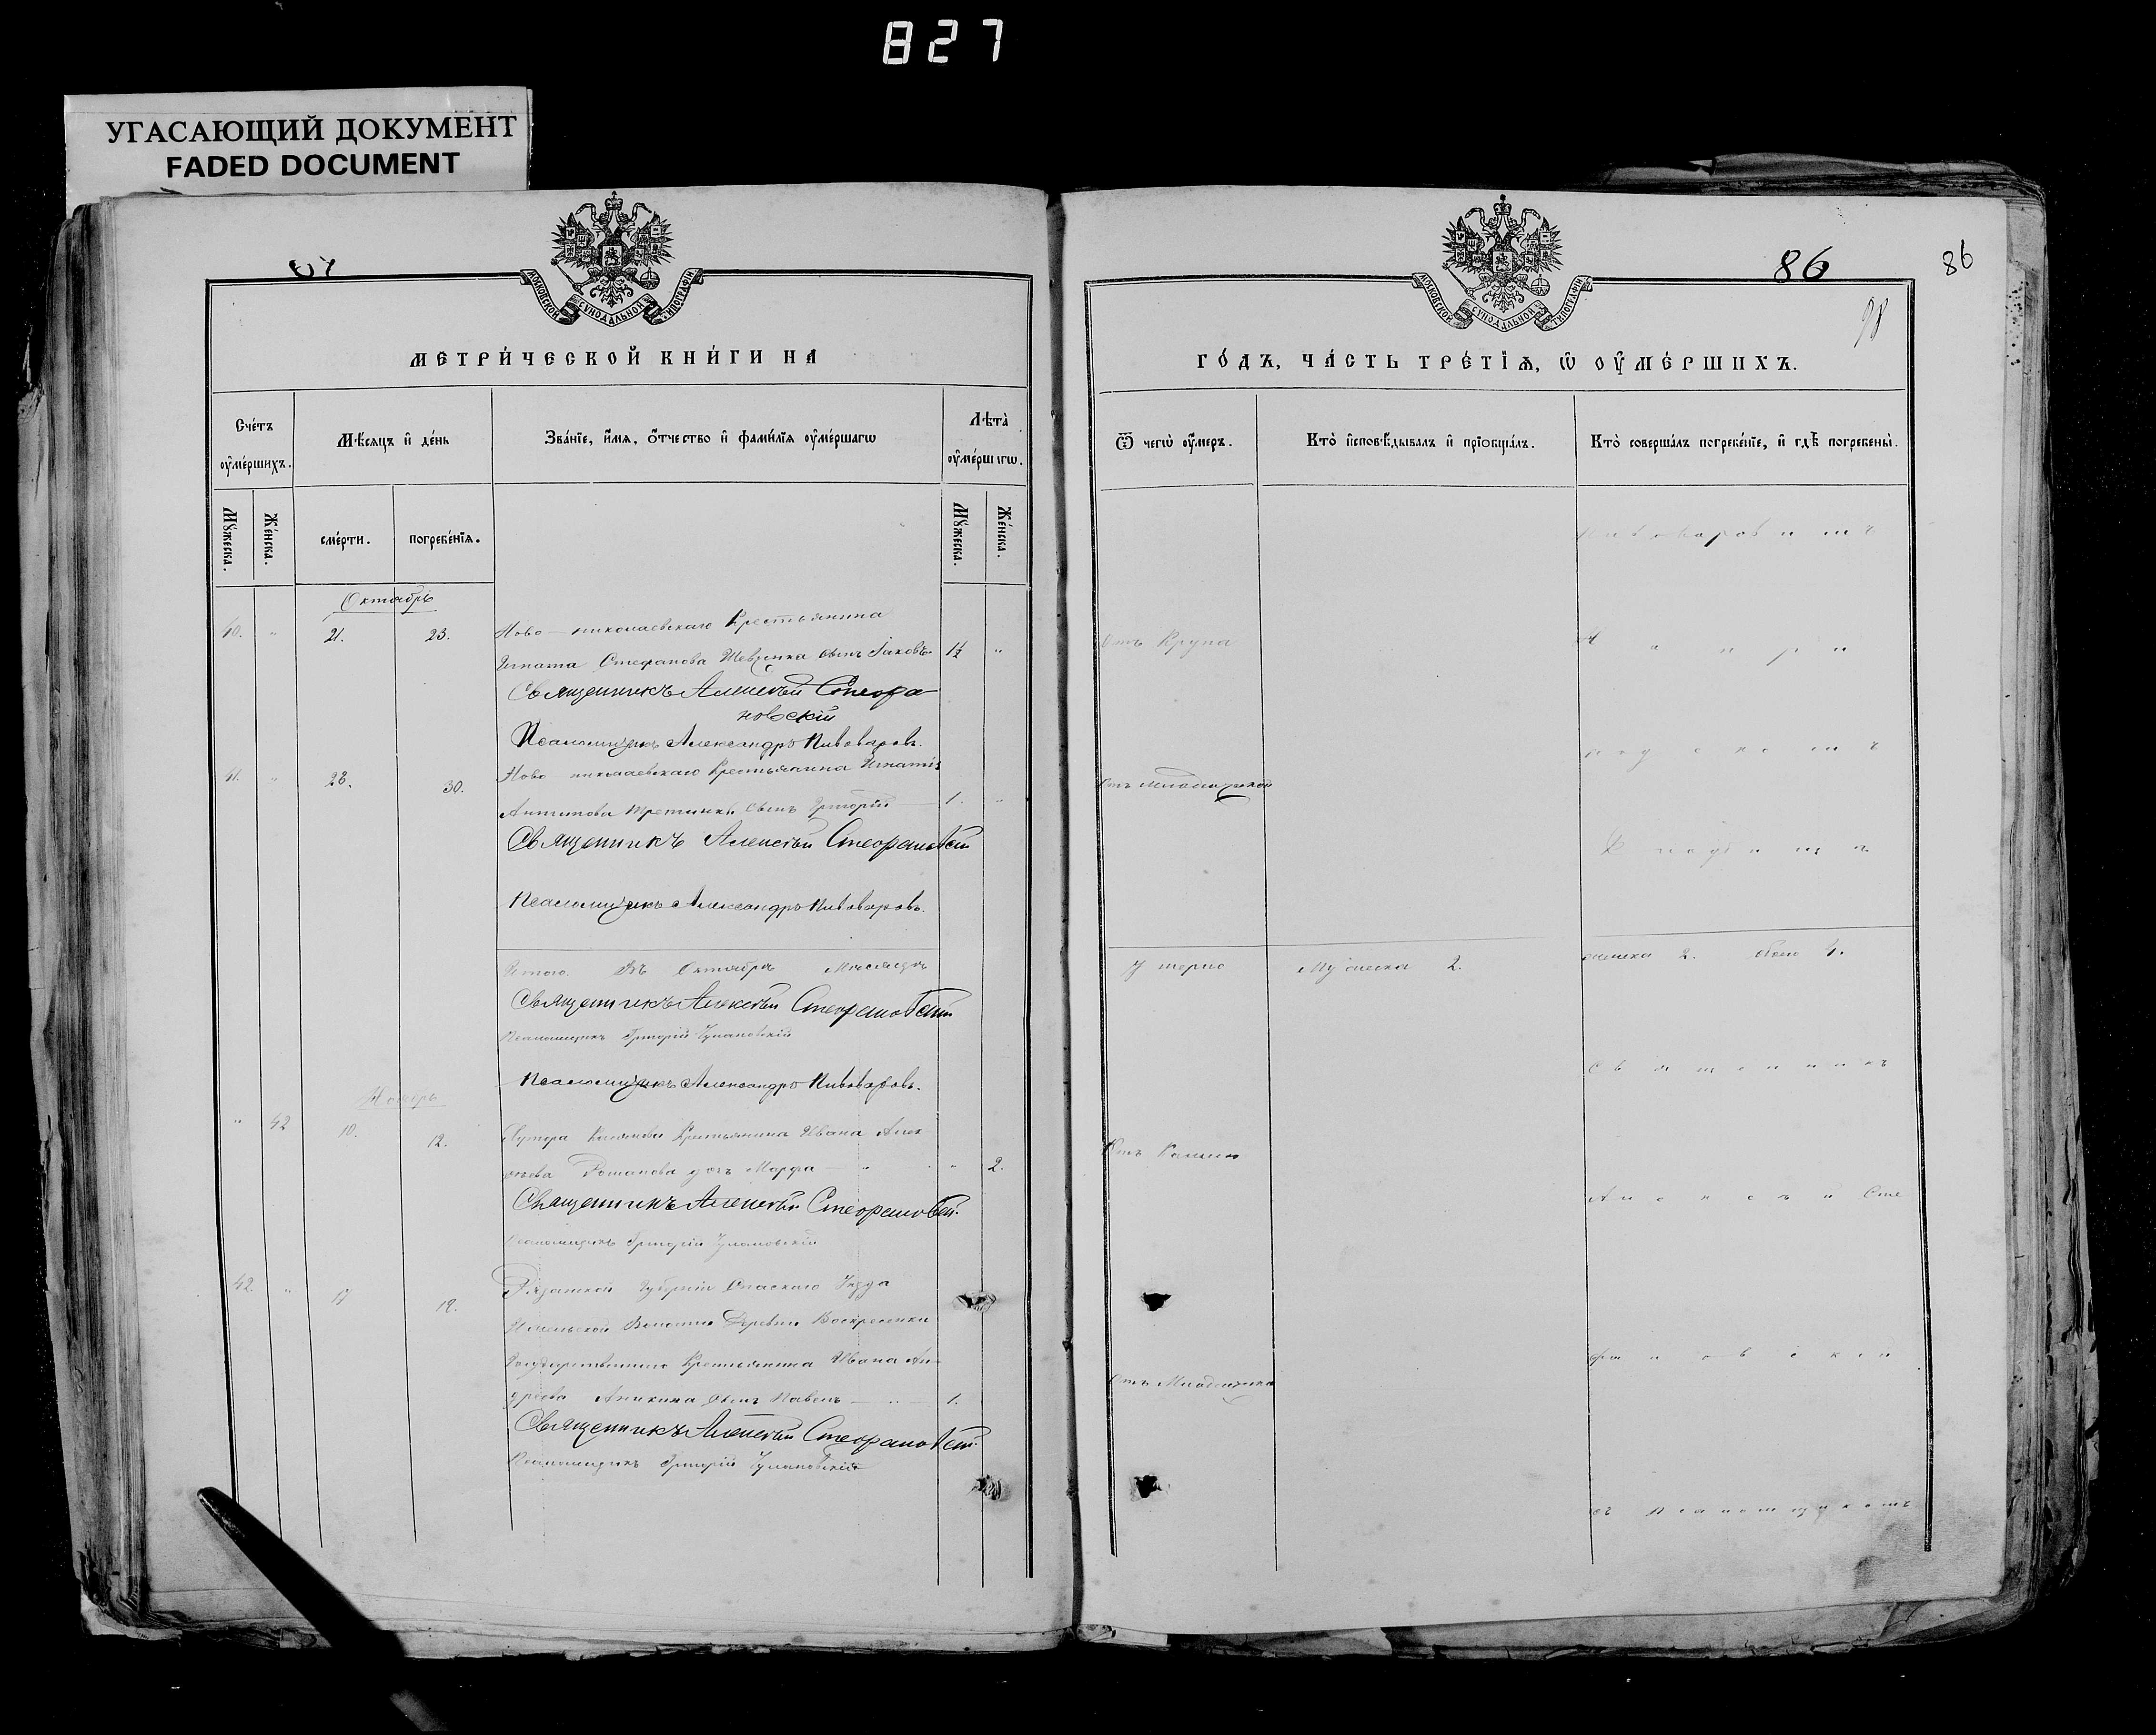 827
УГАСАЮЩИЙ ДОКУМЕНТ
FADED DOCUMENT
МОСКОВСКОЙ СУНОДАЛЬНОЙ ТИПОГРАФІИ
МЕТРИ́ЧЕСКОЙ КНИ́ГИ НА
Сче́тъ ᲂу҆ме́ршихъ.
Мѣ́сяцъ и҆ де́нь
Зва́нїе, и҆́мя, ѻ҆́тчество и҆ фами́лїя ᲂу҆ме́ршагѡ
Лѣта̀ ᲂу҆ме́ршагѡ.
Мꙋ́жеска.
Же́нска.
сме́рти.
погребе́нїя.
Мꙋ́жеска.
Же́нска.
Октябрь
40. " 21. 23. Ново-николаевскаго Крестьянина
Игната Стефанова Шевченка сынъ Іаковъ 1½ "
Священникъ Алексѣй Стефа-
новскій
Псаломщикъ Александръ Пивоваровъ.
41. " 28. 30. Ново-николаевскаго Крестьянина Игнатія
Антипова сынъ Григорій 1. "
Священникъ Алексѣй Стефановскій
Псаломщикъ Александръ Пивоваровъ.
Итого. Въ Октябрѣ Мѣсяцѣ
Священникъ Алексѣй Стефановскій
Псаломщикъ Григорій
Псаломщикъ Александръ Пивоваровъ.
Ноябрь
" 42 10. 12. Хутора Крестьянина Ивана Алек-
сѣева Романова дочь Марфа " " 2.
Священникъ Алексѣй Стефановскій.
Псаломщикъ Григорій
42. " 17 19. Рязанской Губерніи Спаскаго Уѣзда
Волости Деревни Воскресенки
Государственнаго Крестьянина Ивана Ан-
дреева Аникина сынъ Павелъ " 1.
Священникъ Алексѣй Стефановскій.
Псаломщикъ Григорій
МОСКОВСКОЙ СУНОДАЛЬНОЙ ТИПОГРАФІИ
86
86
98
ГО́ДЪ, ЧА́СТЬ ТРЕ́ТЇѦ, Ѡ҆ ОУ҆МЕ́РШИХЪ.
Ѿ чегѡ̀ ᲂу҆́меръ.
Кто̀ и҆сповѣ́дывалъ и҆ прїобща́лъ.
Кто̀ соверша́лъ погребе́нїе, и҆ гдѣ̀ погребены̀.
Пивоваровымъ
Отъ Крупа
На при
ходскомъ
Отъ Младенческой
Кладбищѣ
Умерло Мужеска 2. женска 2. обоего 4.
Священникъ
Отъ Кашля
Алексѣй Сте
фановскій
Отъ Младенческой
съ Псаломщикомъ